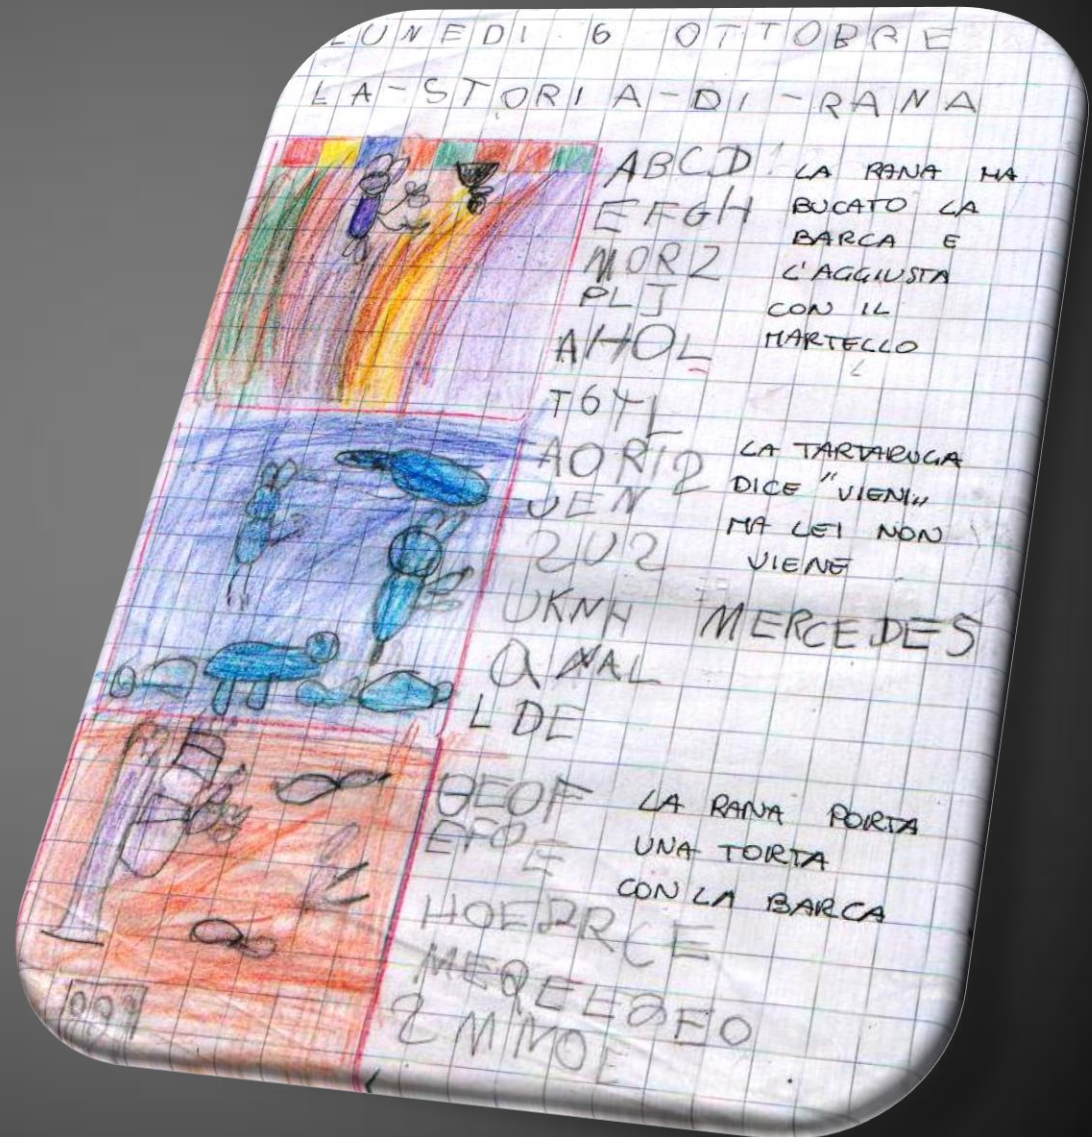 LUNEDI 6 OTTOBRE
LA-STORIA-DI-RANA
ABCD
EFGH
MORZ
PLI
AHOL
T6YL
LA RANA HA
BUCATO LA
BARCA E
L'AGGIUSTA
CON IL
MARTELLO
AORI2
UEN
2U2
UKNH
QANAL
LDE
LA TARTARUGA
DICE "VIENI"
MA LEI NON
VIENE
MERCEDES
OEOF
EFOE
HOEPRCE
MEQEEOEO
2MMOE
LA RANA PORTA
UNA TORTA
CON LA BARCA